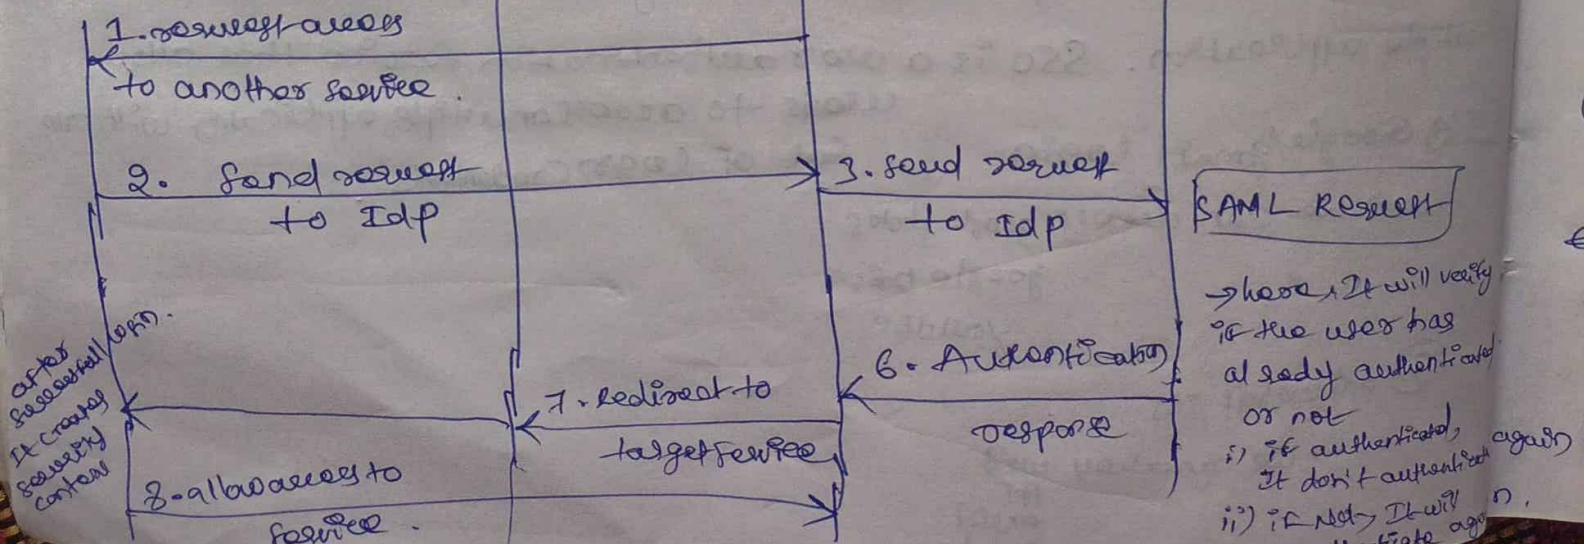 1. request access
to another service.
2. Send request
to Idp
3. send request
to Idp
SAML Request
→ here, It will verify
if the user has
already authenticated
or not
i) if authenticated,
It don't authenticate again
ii) if Not → It will
6. Authentication
response
7. Redirect to
target service
after
successfull login.
It creates
security
context
8. allow access to
service.